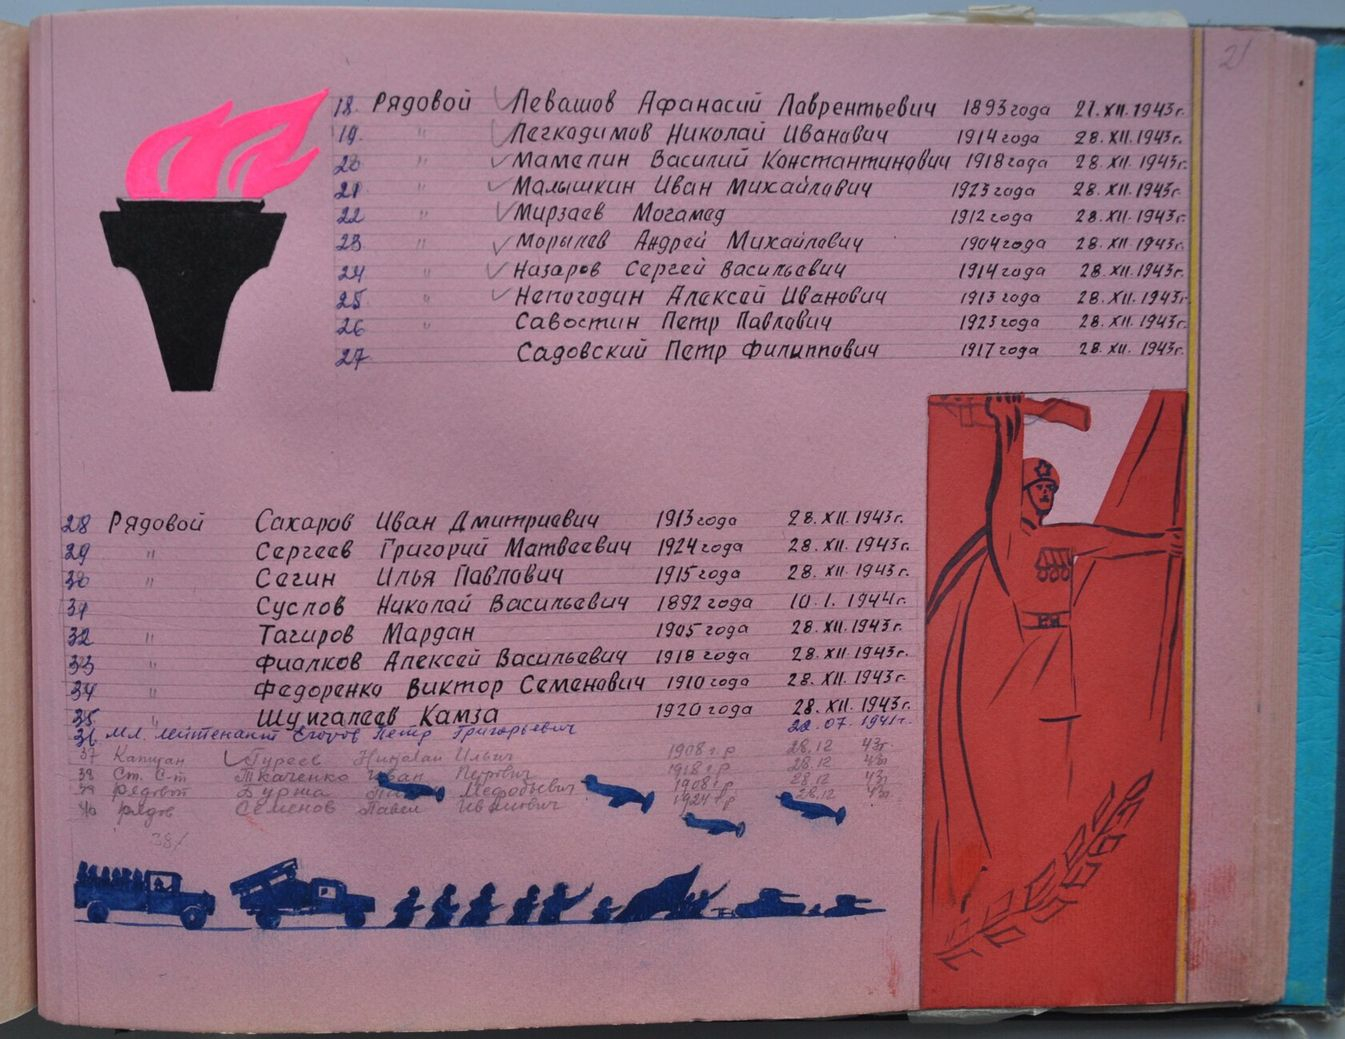 21
18. Рядовой Левашов Афанасий Лаврентьевич 1893 года 21. XII. 1943 г.
19. " Легкодимов Николай Иванович 1914 года 28. XII. 1943 г.
20 " Мамелин Василий Константинович 1918 года 28. XII. 1943 г.
21 " Малышкин Иван Михайлович 1923 года 28. XII. 1943 г.
22 " Мирзаев Могамед 1912 года 28. XII. 1943 г.
23 " Морылев Андрей Михайлович 1904 года 28. XII. 1943 г.
24 " Назаров Сергей Васильевич 1914 года 28. XII. 1943 г.
25 " Непогодин Алексей Иванович 1913 года 28. XII. 1943 г.
26 " Савостин Петр Павлович 1923 года 28. XII. 1943 г.
27 Садовский Петр Филиппович 1917 года 28. XII. 1943 г.
28 Рядовой Сахаров Иван Дмитриевич 1913 года 28. XII. 1943 г.
29 " Сергеев Григорий Матвеевич 1924 года 28. XII. 1943 г.
30 " Сегин Илья Павлович 1915 года 28. XII. 1943 г.
31 Суслов Николай Васильевич 1892 года 10. 1. 1944 г.
32 " Тагиров Мардан 1905 года 28. XII. 1943 г.
33 " Фиалков Алексей Васильевич 1918 года 28. XII. 1943 г.
34 " Федоренко Виктор Семенович 1910 года 28. XII. 1943 г.
35 " Шумгалеев Камза 1920 года 28. XII. 1943 г.
36 Мл. лейтенант Егоров Петр Григорьевич 22. 07. 1941 г.
37 Капитан Гуреев Николай Ильич 1908 г.р 28.12 43 г.
38 Ст. с-т Ткаченко Иван Петрович 1918 г.р 28.12 43 г
39 рядовой Дурма Мефодьевич 1908 г.р 28.12 43 г
40 рядов Семенов Павел Иванович 1924 г р 28.12 43 г
38/